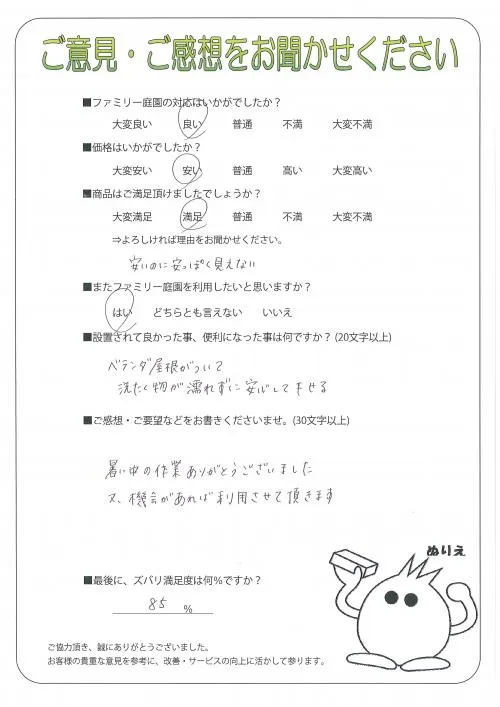 ご意見・ご感想をお聞かせください
■ファミリー庭園の対応はいかがでしたか？
大変良い 良い 普通 不満 大変不満
■価格はいかがでしたか？
大変安い 安い 普通 高い 大変高い
■商品はご満足頂けましたでしょうか？
大変満足 満足 普通 不満 大変不満
⇒よろしければ理由をお聞かせください。
安いのに安っぽく見えない
■またファミリー庭園を利用したいと思いますか？
はい どちらとも言えない いいえ
■設置されて良かった事、便利になった事は何ですか？(20文字以上)
ベランダ屋根がついて
洗たく物が濡れずに安心してませる
■ご感想・ご要望などをお書きくださいませ。(30文字以上)
暑い中の作業ありがとうございました
又、機会があれば利用させて頂きます
ぬりえ
■最後に、ズバリ満足度は何％ですか？
85 %
ご協力頂き、誠にありがとうございました。
お客様の貴重な意見を参考に、改善・サービスの向上に活かして参ります。